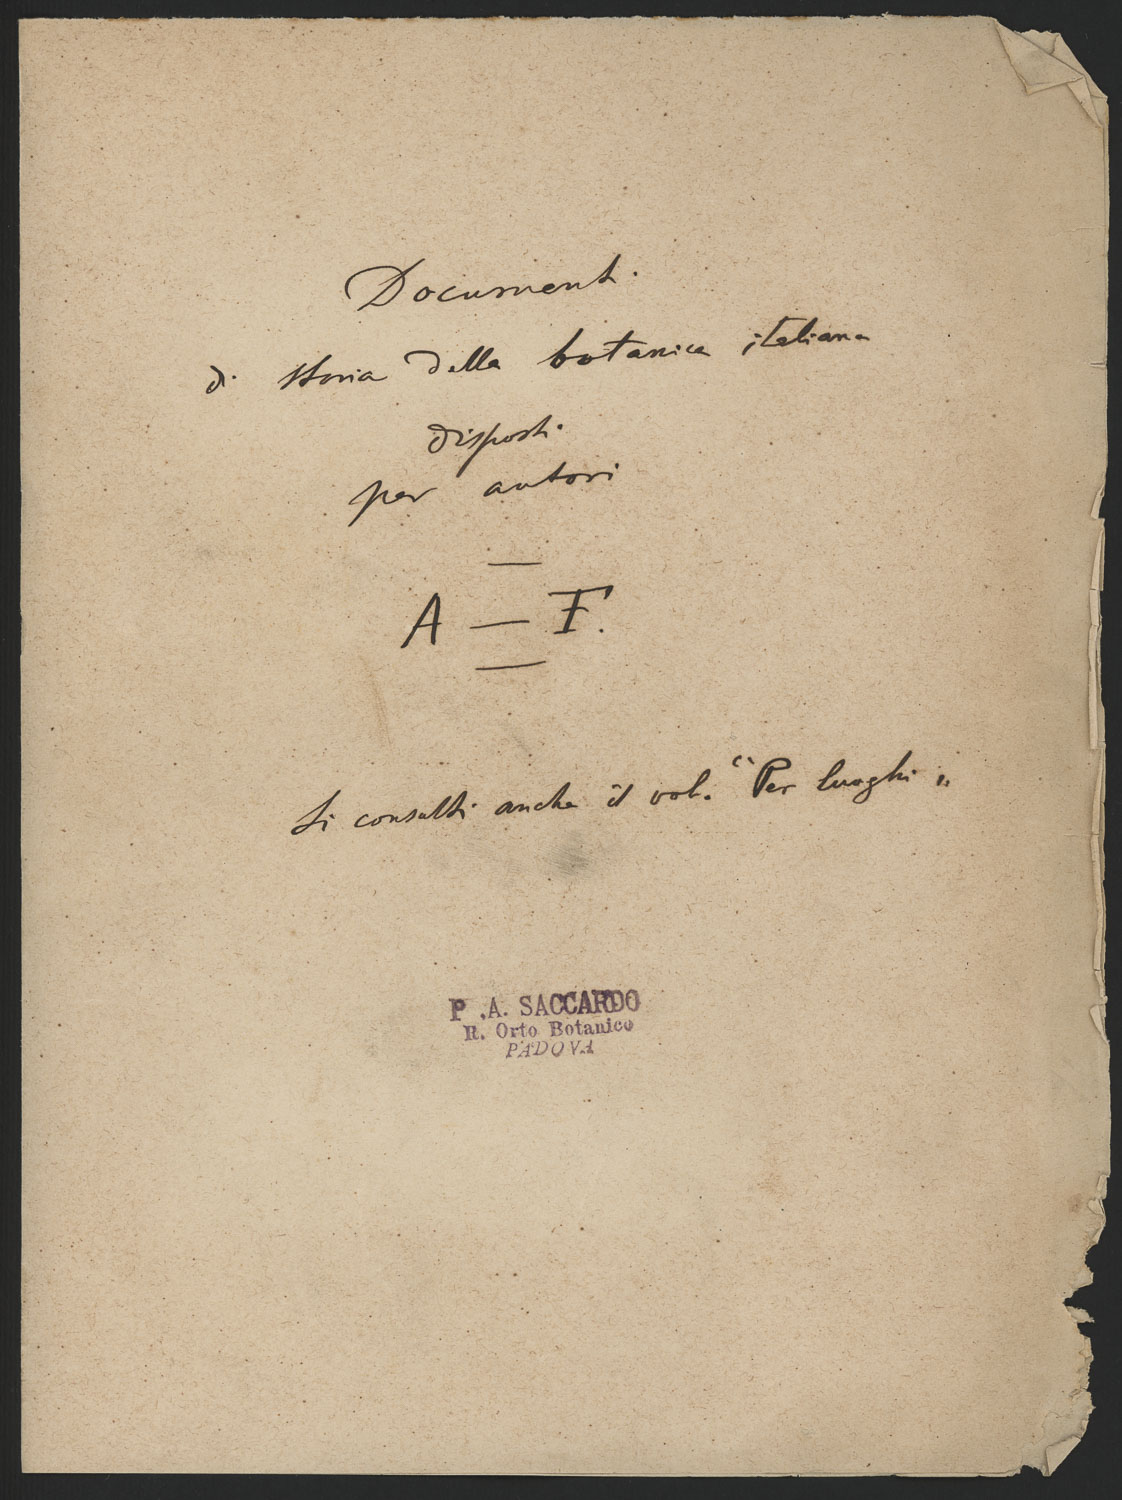 Documenti
di storia della botanica italiana
disposti
per autori
A — F.
Si consulti anche il vol. “Per luoghi„
P. A. SACCARDO
R. Orto Botanico
PADOVA